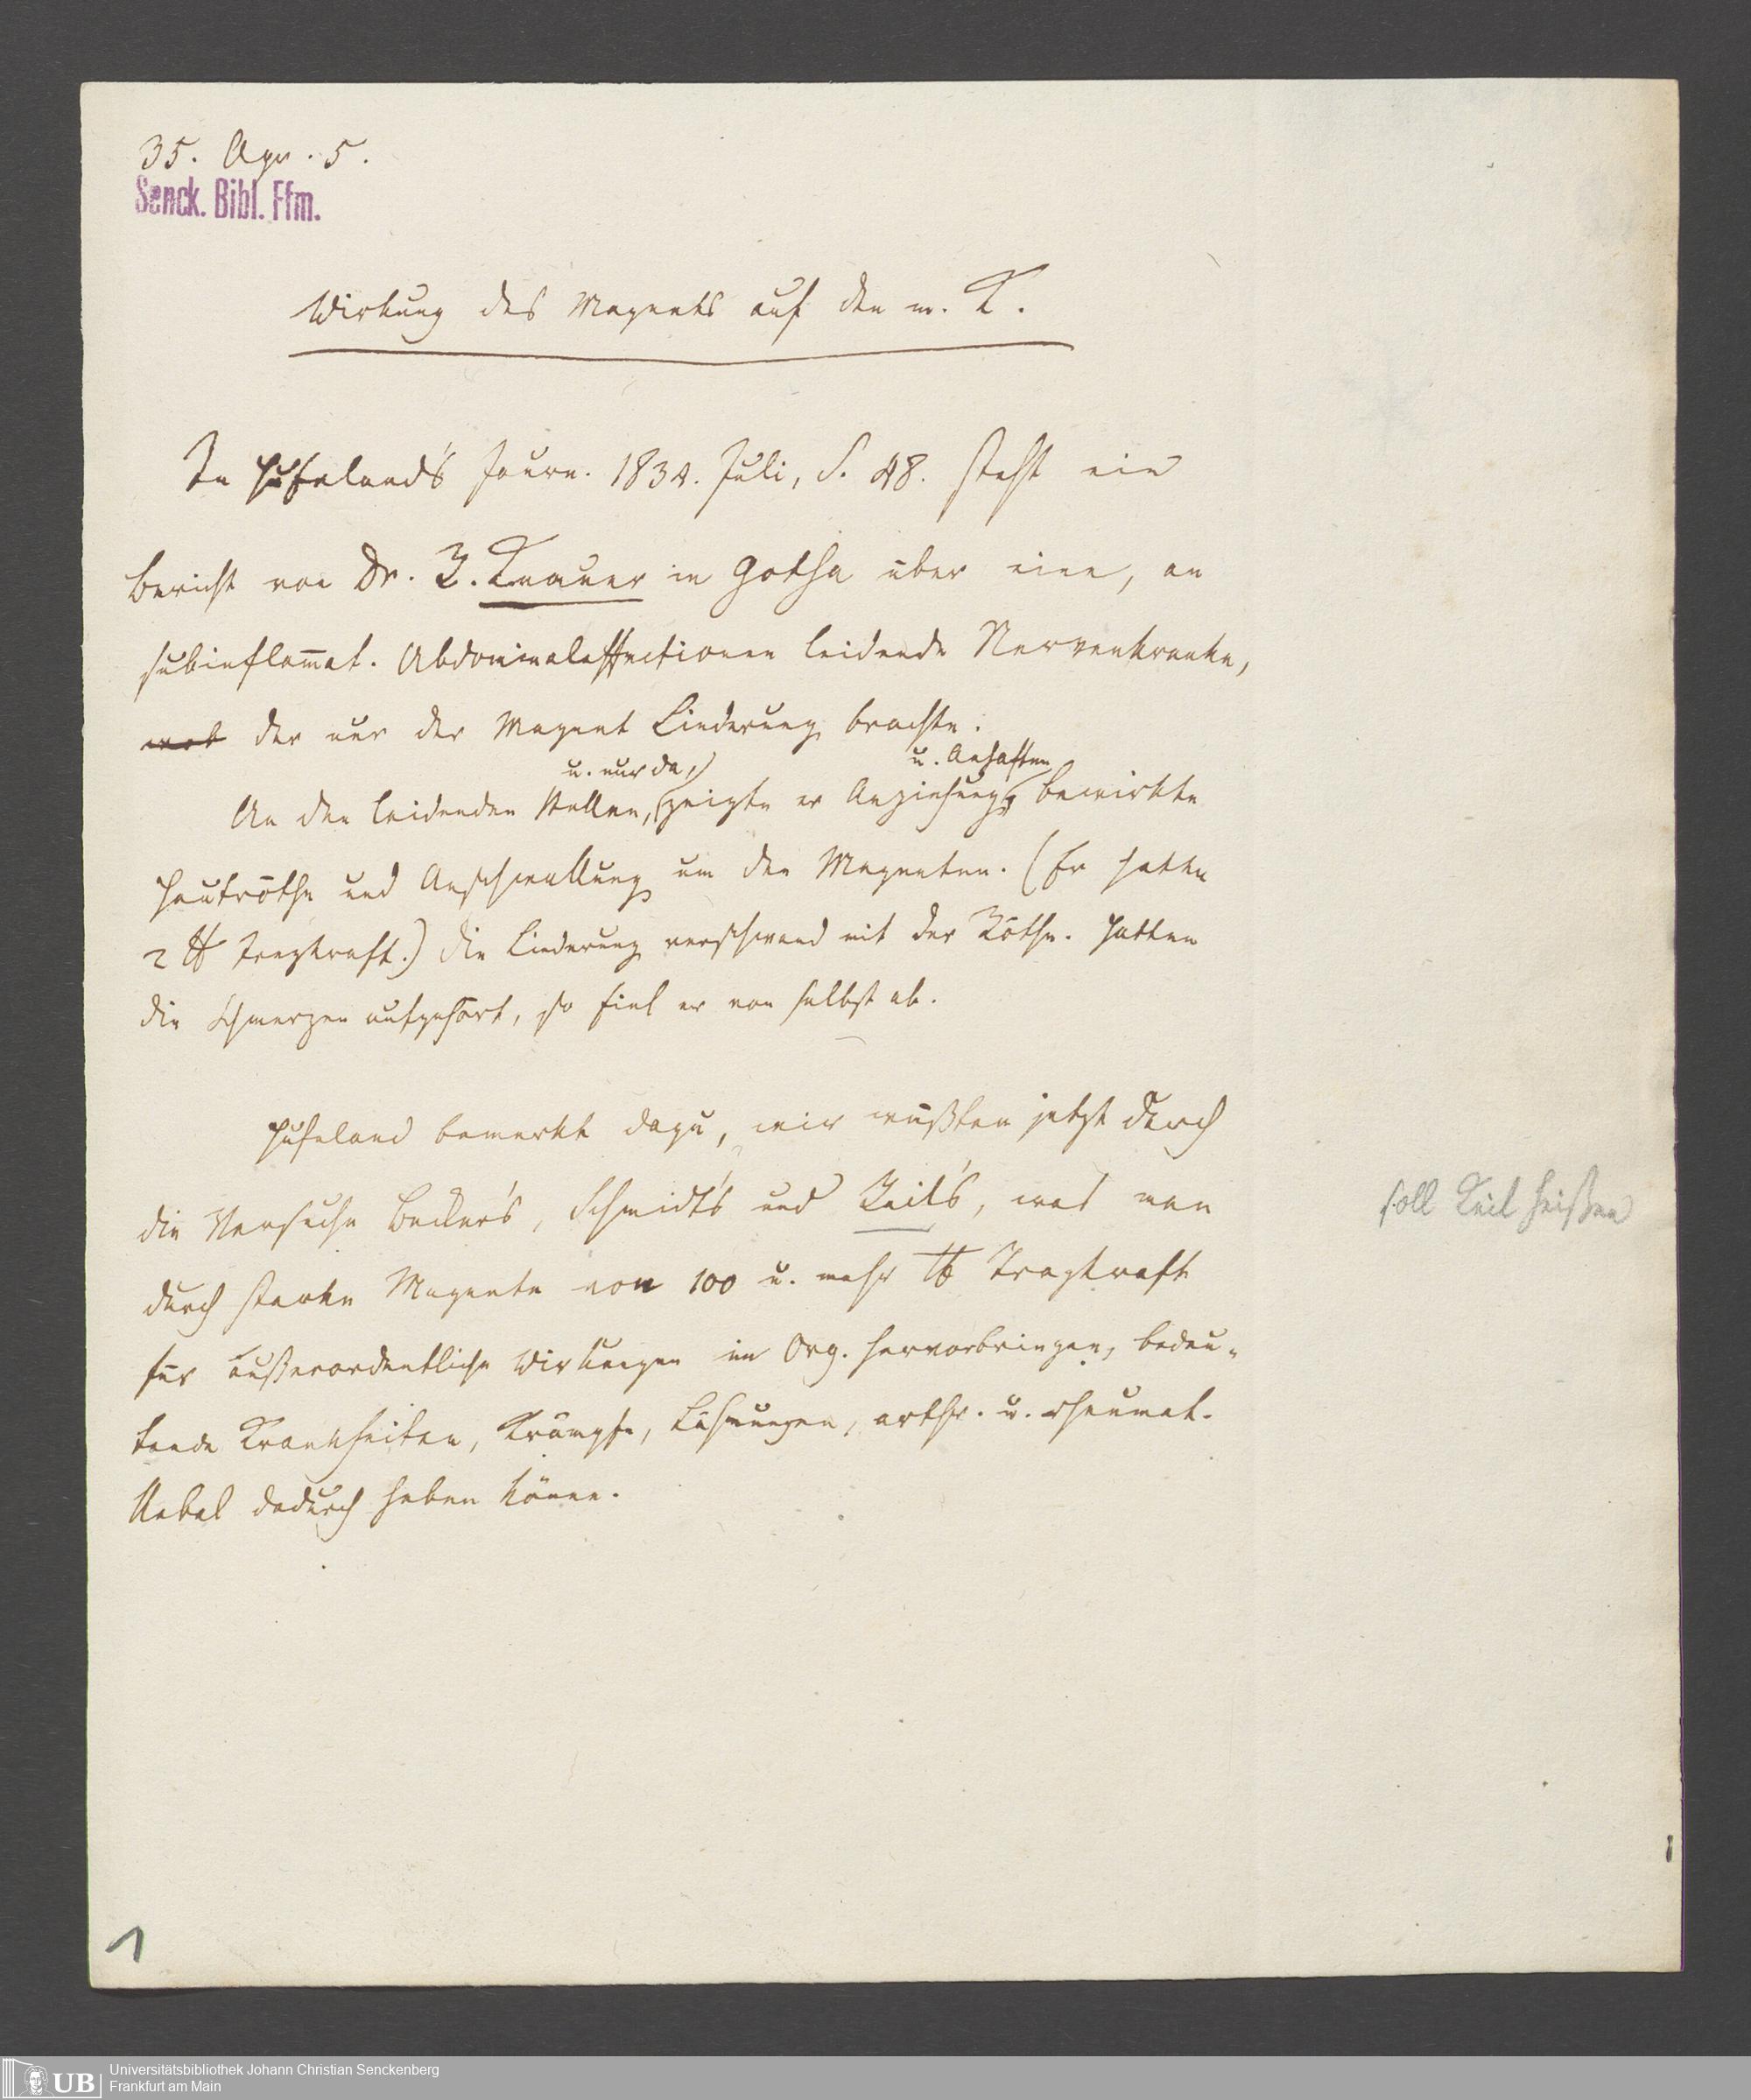 35. Apr. 5.
Senck. Bibl. Ffm.
Wirkung des Magnets auf den m. K.
In Hufeland's Journ. 1834. Juli, S. 48. steht ein
Bericht von Dr. Z. Knauer in Gotha über eine, an
subinflam̄at. Abdominalaffectionen leidende Nervenkranke,
der nur der Magnet Linderung brachte.
u. nur da, u. Anhaften
An den leidenden Stellen, zeigte er Anziehung, bewirkte
Hautröthe und Anschwellung um den Magneten. (Er hatte
2 ℔ Tragkraft.) Die Linderung verschwand mit der Röthe. Hatten
die Schmerzen aufgehört, so fiel er von selbst ab.
Hufeland bemerkt dazu, wir wüßten jetzt durch
die Versuche Becker's, Schmidt's und Reil's, was man
durch starke Magnete von 100 u. mehr ℔ Tragkraft
für außerordentliche Wirkungen im Org. hervorbringen, bedeu-
tende Krankheiten, Krämpfe, Lähmungen, arthr. u. rheumat.
Uebel dadurch heben könne.
soll Keil heißen
1
UB
Universitätsbibliothek Johann Christian Senckenberg
Frankfurt am Main